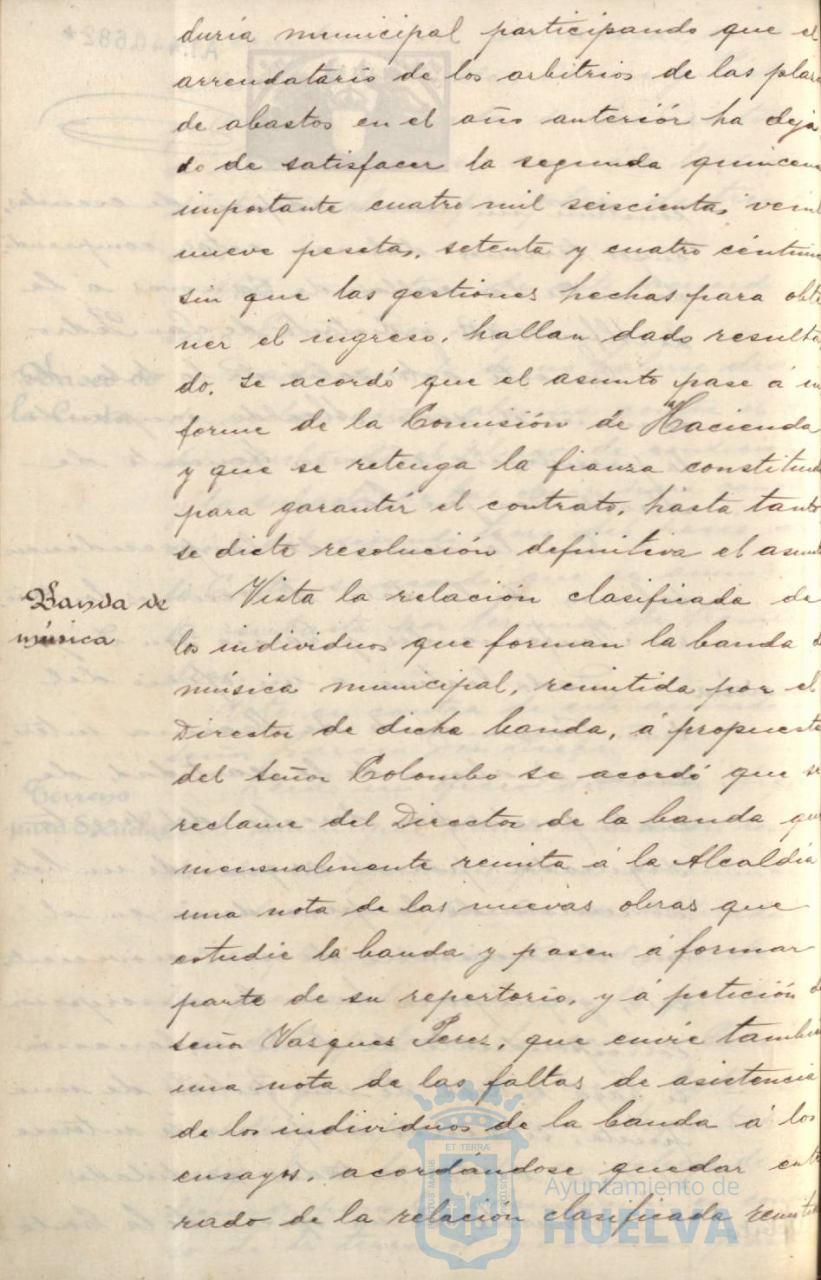 duria municipal participando que el
arrendatario de los arbitrios de las plaza
de abastos en el año anteriór ha deja
do de satisfacer la segunda quincena
importante cuatro mil seiscientas veint
nueve pesetas, setenta y cuatro céntimo
sin que las gestiones hechas para obte
ner el ingreso, hallan dado resulta
do. Se acordó que el asunto pase á in
forme de la Comisión de Hacienda
y que se retenga la fianza constituid
para garantir el contrato, hasta tanto
se dicte resolución definitiva el asunt
Banda de
música
Vista la relación clasificada de
los individuos que forman la banda d
música municipal, remitida por el
Director de dicha banda, á propuesta
del Señor Colombo se acordó que se
reclame del Director de la banda que
mensualmente remita á la Alcaldía
una nota de las nuevas obras que
estudie la banda y pasen á formar
parte de su repertorio, y á petición d
señor Vazques Perez, que envie tambié
una nota de las faltas de asistencia
de los individuos de la banda á los
ensayos, acordándose quedar ente
rado de la relación clasificada remit
Ayuntamiento de
HUELVA
ET TERRÆ